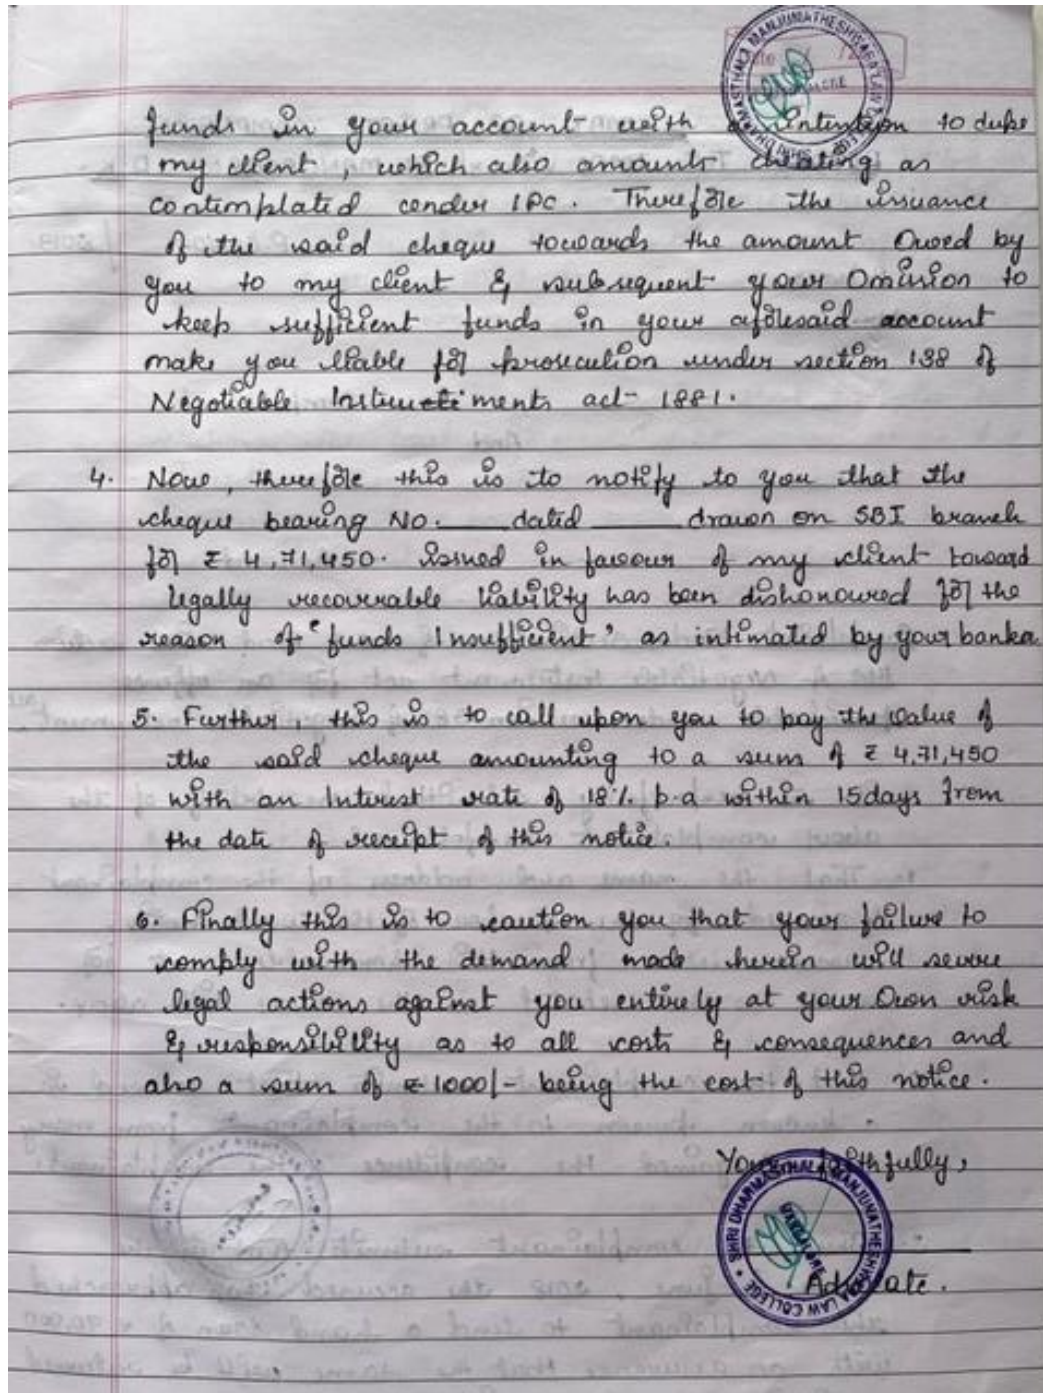 SHRI DHARMASTHALA MANJUNATHESHWARA LAW COLLEGE
funds in your account with intention to dupe
my client, which also amounts cheating as
contemplated cender IPC. Therefore the issuance
of the said cheque towards the amount Owed by
you to my client & subsequent your Omission to
keep sufficient funds in your aforesaid account
make you liable for prosecution under section 138 of
Negotiable Instruments act- 1881.
4. Now, therefore this is to notify to you that the
cheque bearing No. ____ dated ____ drawn on SBI branch
for ₹ 4,71,450. issued in favour of my client toward
legally recoverable liability has been dishonoured for the
reason of "funds Insufficient' as intimated by your banka
5. Further, this is to call upon you to pay the value of
the said cheque amounting to a sum of ₹ 4,71,450
with an Interest rate of 18% p.a within 15days from
the date of receipt of this notice.
6. Finally this is to caution you that your failure to
comply with the demand made herein will severe
legal actions against you entirely at your Own risk
& responsibility as to all costs & consequences and
also a sum of ₹ 1000/- being the cost of this notice.
Yours faithfully,
SHRI DHARMASTHALA MANJUNATHESHWARA LAW COLLEGE
MANGALORE
Advocate.